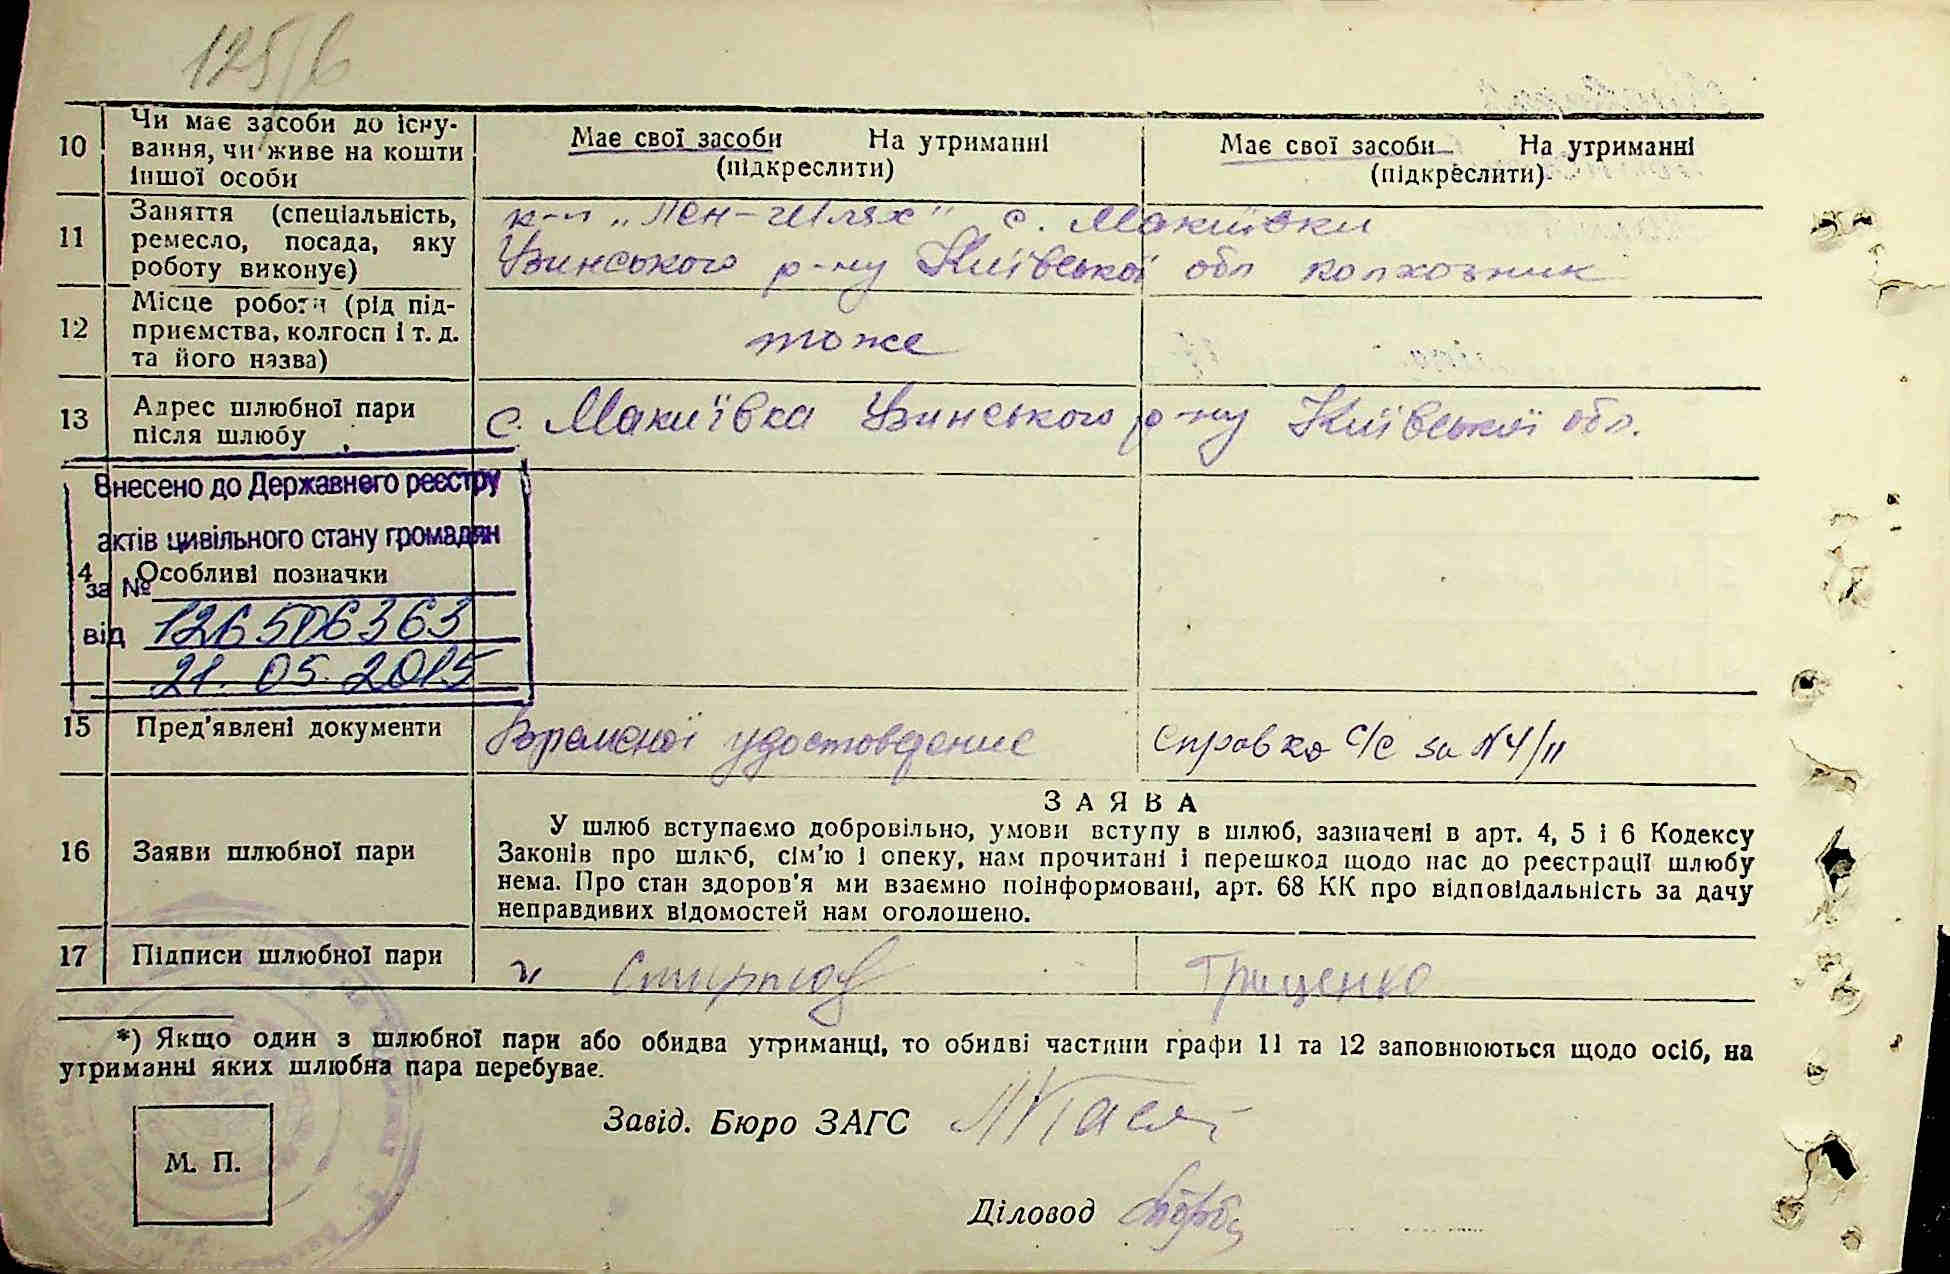 125/6
10 Чи має засоби до існу-
вання, чи живе на кошти
іншої особи
Має свої засоби На утриманні
(підкреслити)
Має свої засоби На утриманні
(підкреслити)
11 Заняття (спеціальність,
ремесло, посада, яку
роботу виконує)
к-п „Лен-Шлях" с. Макиївки
Узинського р-ну Київської обл колхозник
12 Місце роботи (рід під-
приємства, колгосп і т. д.
та його назва)
тоже
13 Адрес шлюбної пари
після шлюбу
с. Макиївка Узинського р-ну Київської обл.
Внесено до Державного реєстру
актів цивільного стану громадян
4 Особливі позначки
за №
126506363
від
21. 05. 2015
15 Пред'явлені документи
Временої удостоведение
справка с/с за №4/11
16 Заяви шлюбної пари
ЗАЯВА
У шлюб вступаємо добровільно, умови вступу в шлюб, зазначені в арт. 4, 5 і 6 Кодексу
Законів про шлюб, сім'ю і опеку, нам прочитані і перешкод щодо нас до реєстрації шлюбу
нема. Про стан здоров'я ми взаємно поінформовані, арт. 68 КК про відповідальність за дачу
неправдивих відомостей нам оголошено.
17 Підписи шлюбної пари
Гриценко
*) Якщо один з шлюбної пари або обидва утриманці, то обидві частини графи 11 та 12 заповнюються щодо осіб, на
утриманні яких шлюбна пара перебуває.
Завід. Бюро ЗАГС
М. П.
Діловод